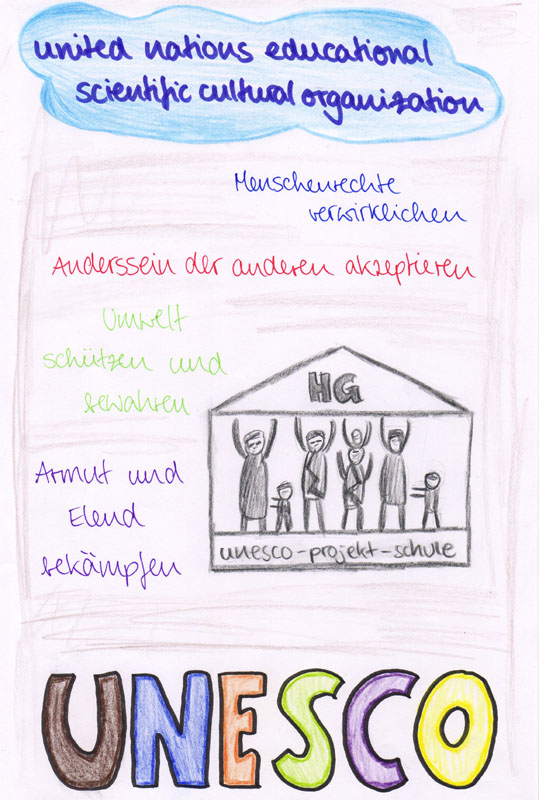 united nations educational
scientific cultural organization
Menschenrechte
verwirklichen
Anderssein der anderen akzeptieren
Umwelt
schützen und
bewahren
Armut und
Elend
bekämpfen
HG
unesco-projekt-schule
UNESCO